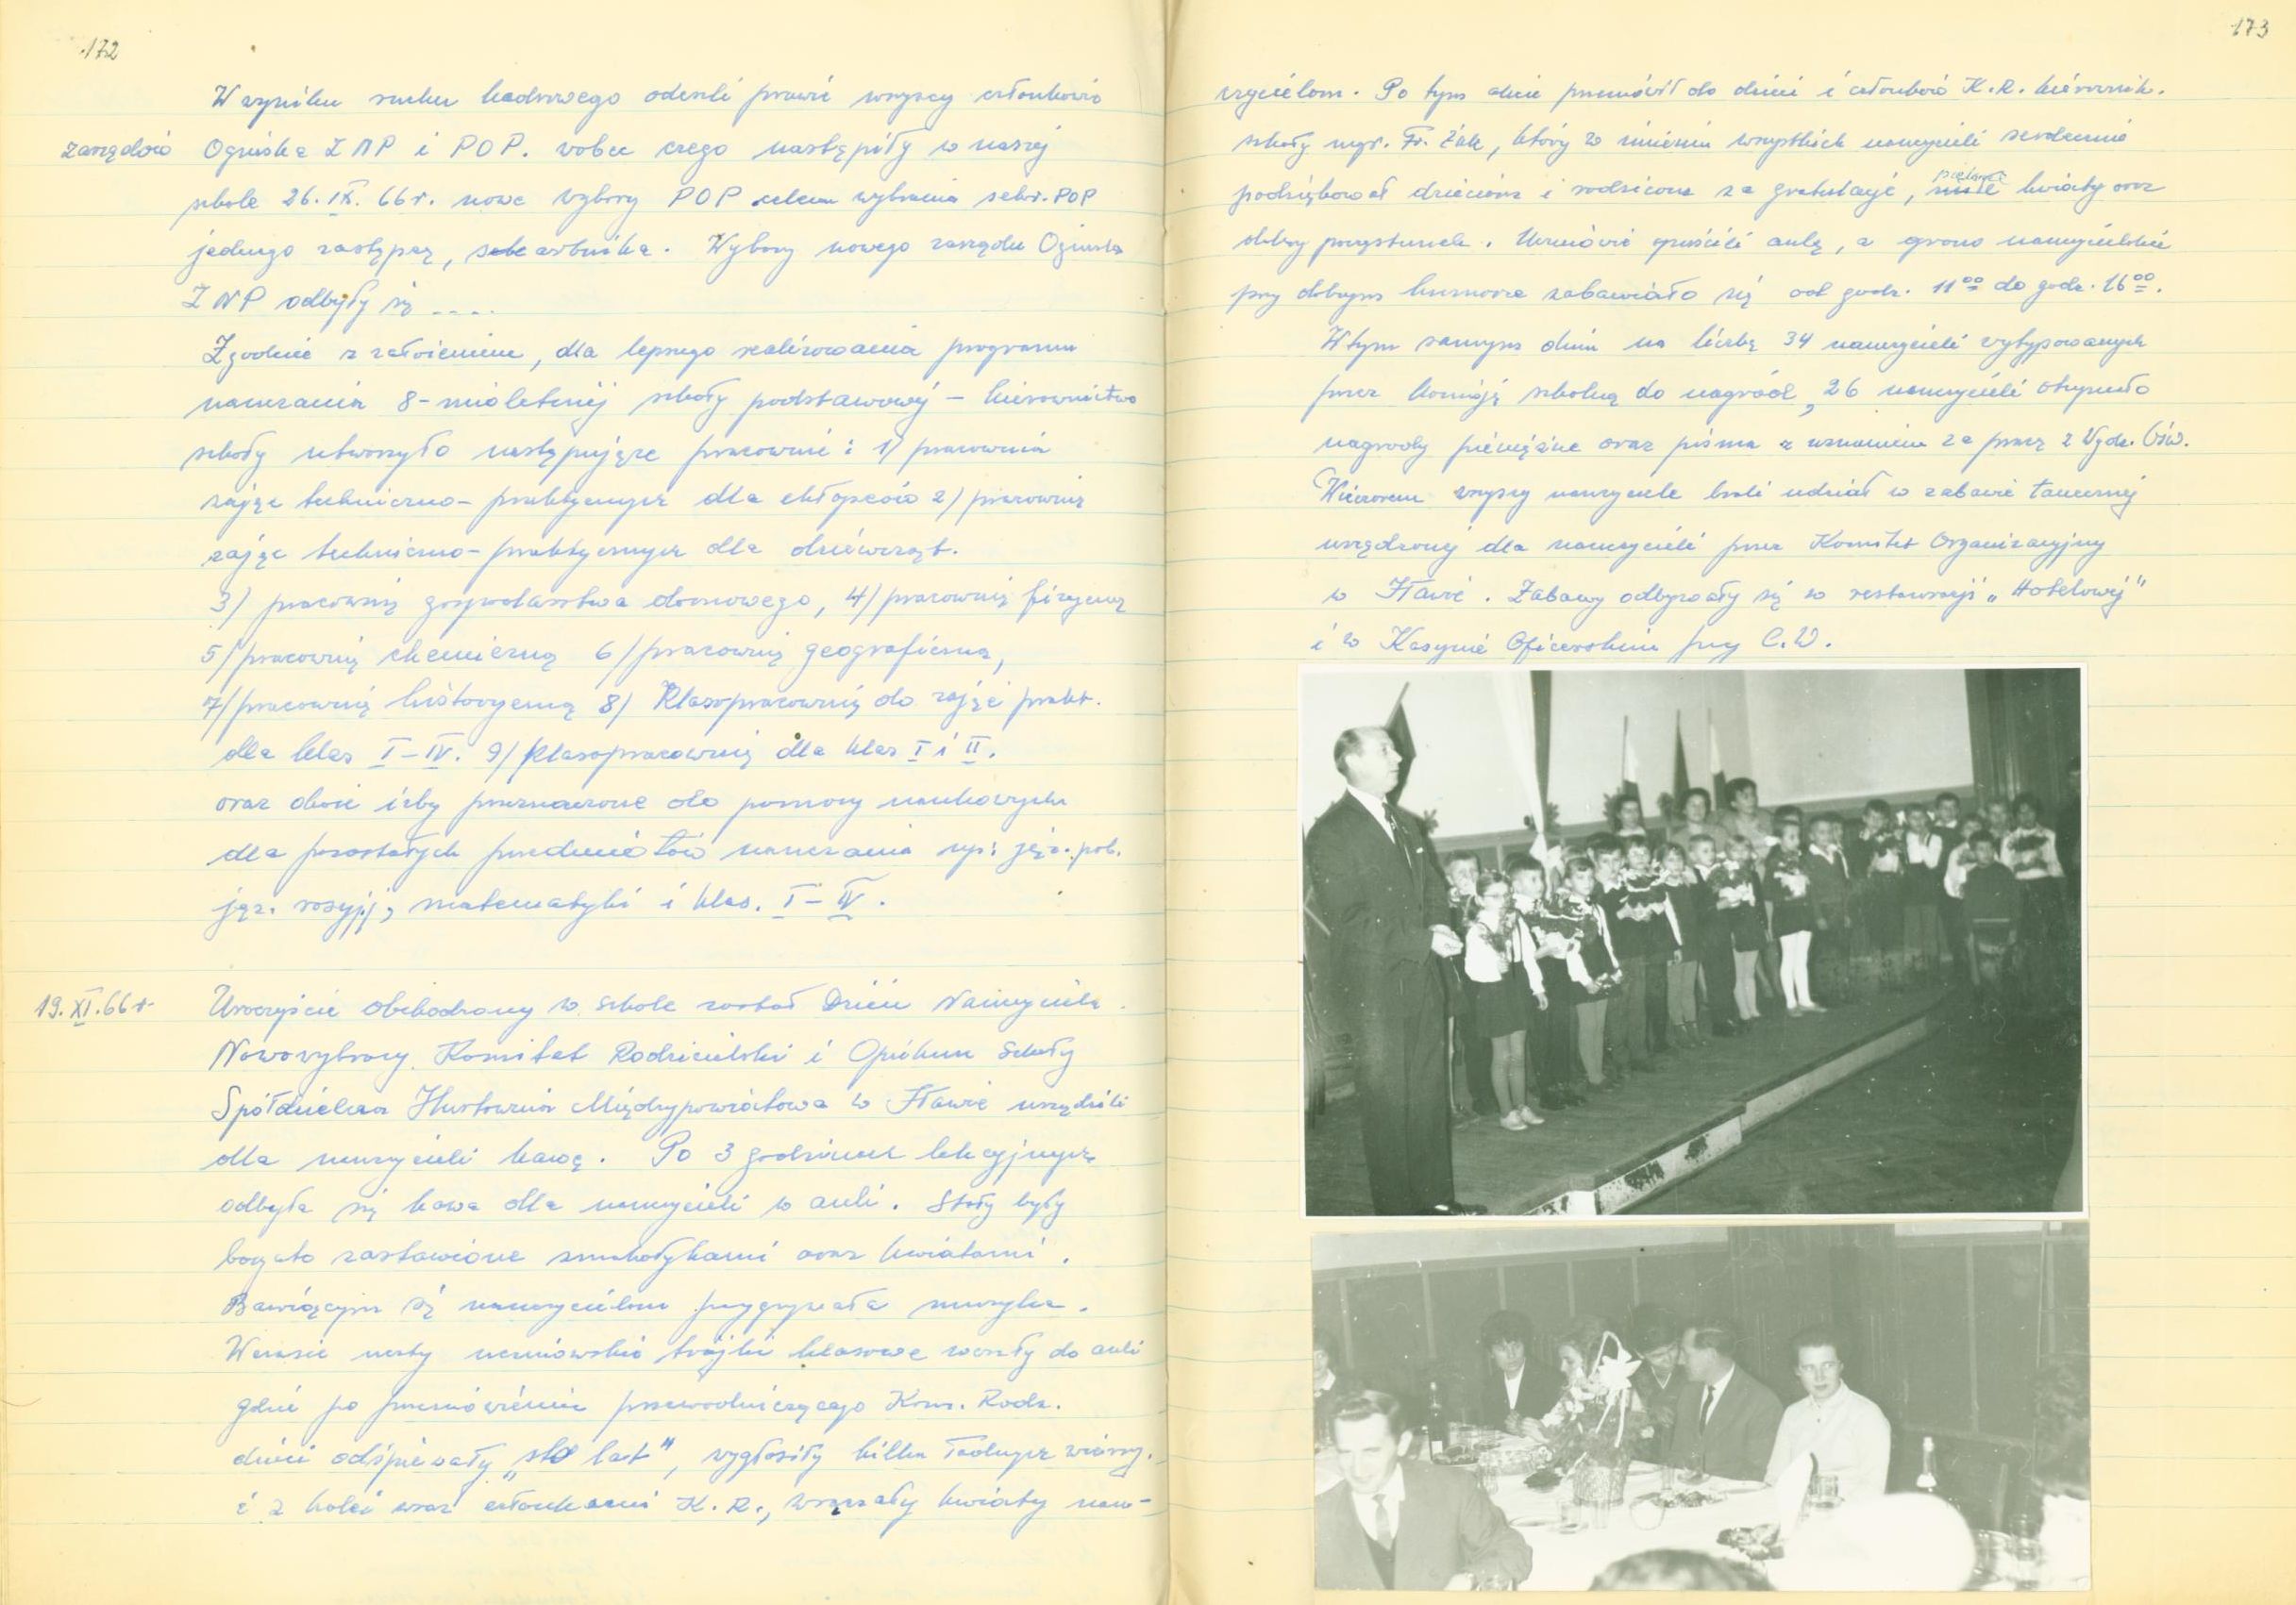 172
W wyniku ruchu kadrowego odeszli prawie wszyscy członkowie
zarządów Ogniska ZNP i POP. wobec czego nastąpiły w naszej
szkole 26.IX.66r. nowe wybory POP celem wybrania sekr. POP
jednego zastępcę, skarbnika. Wybory nowego zarządu Ogniska
ZNP odbyły się ....
Zgodnie z założeniem, dla lepszego realizowania programu
nauczania 8-mioletniej szkoły podstawowej – kierownictwo
szkoły utworzyło następujące pracownie: 1/ pracownia
zajęć techniczno-praktycznych dla chłopców 2/ pracownię
zajęć techniczno-praktycznych dla dziewcząt.
3/ pracownię gospodarstwa domowego, 4/ pracownię fizyczną
5/ pracownię chemiczną 6/ pracownię geograficzną,
7/ pracownię historyczną 8/ Klasopracownię do zajęć prakt.
dla klas I-IV. 9/ Klasopracownię dla klas I i II.
oraz dwie izby przeznaczone do pomocy naukowych
dla pozostałych przedmiotów nauczania np: jęz. pol.
jęz. rosyjj, matematyki i klas. I-IV.
19.XI.66r Uroczyście obchodzony w szkole został Dzień Nauczyciela.
Nowowybrany Komitet Rodzicielski i Opiekun szkoły
Spółdzielcza Hurtownia Międzypowiatowa w Iławie urządzili
dla nauczycieli kawę. Po 3 godzinach lekcyjnych
odbyła się kawa dla nauczycieli w auli. Stoły były
bogato zastawione smakołykami oraz kwiatami.
Bawiącym się nauczycielom przygrywała muzyka.
W czasie uczty uczniowskie trójki klasowe weszły do auli
gdzie po przemówieniu przewodniczącego Kom. Rodz.
dzieci odśpiewały „sto lat", wygłosiły kilka ładnych wierszy.
i z kolei wraz członkami K.R., wręczały kwiaty nau-
173
czycielom. Po tym akcie przemówił do dzieci i członków K.R. kierownik.
szkoły mgr. Fr. Żak, który w imieniu wszystkich nauczycieli serdecznie
podziękował dzieciom i rodzicom za gratulacje, piękne kwiaty oraz
dobry poczęstunek. Uczniowie opuścili aulę, a grono nauczycielskie
przy dobrym humorze zabawiało się od godz. 11⁰⁰ do godz. 16⁰⁰.
W tym samym dniu na liczbę 34 nauczycieli wytypowanych
przez komisję szkolną do nagród, 26 nauczycieli otrzymało
nagrody pieniężne oraz pisma z uznaniem za pracę z Wydz. Ośw.
Wieczorem wszyscy nauczyciele brali udział w zabawie tanecznej
urządzonej dla nauczycieli przez Komitet Organizacyjny
w Iławie. Zabawy odbywały się w restauracji „Hotelowej"
i w Kasynie Oficerskim przy C.W.